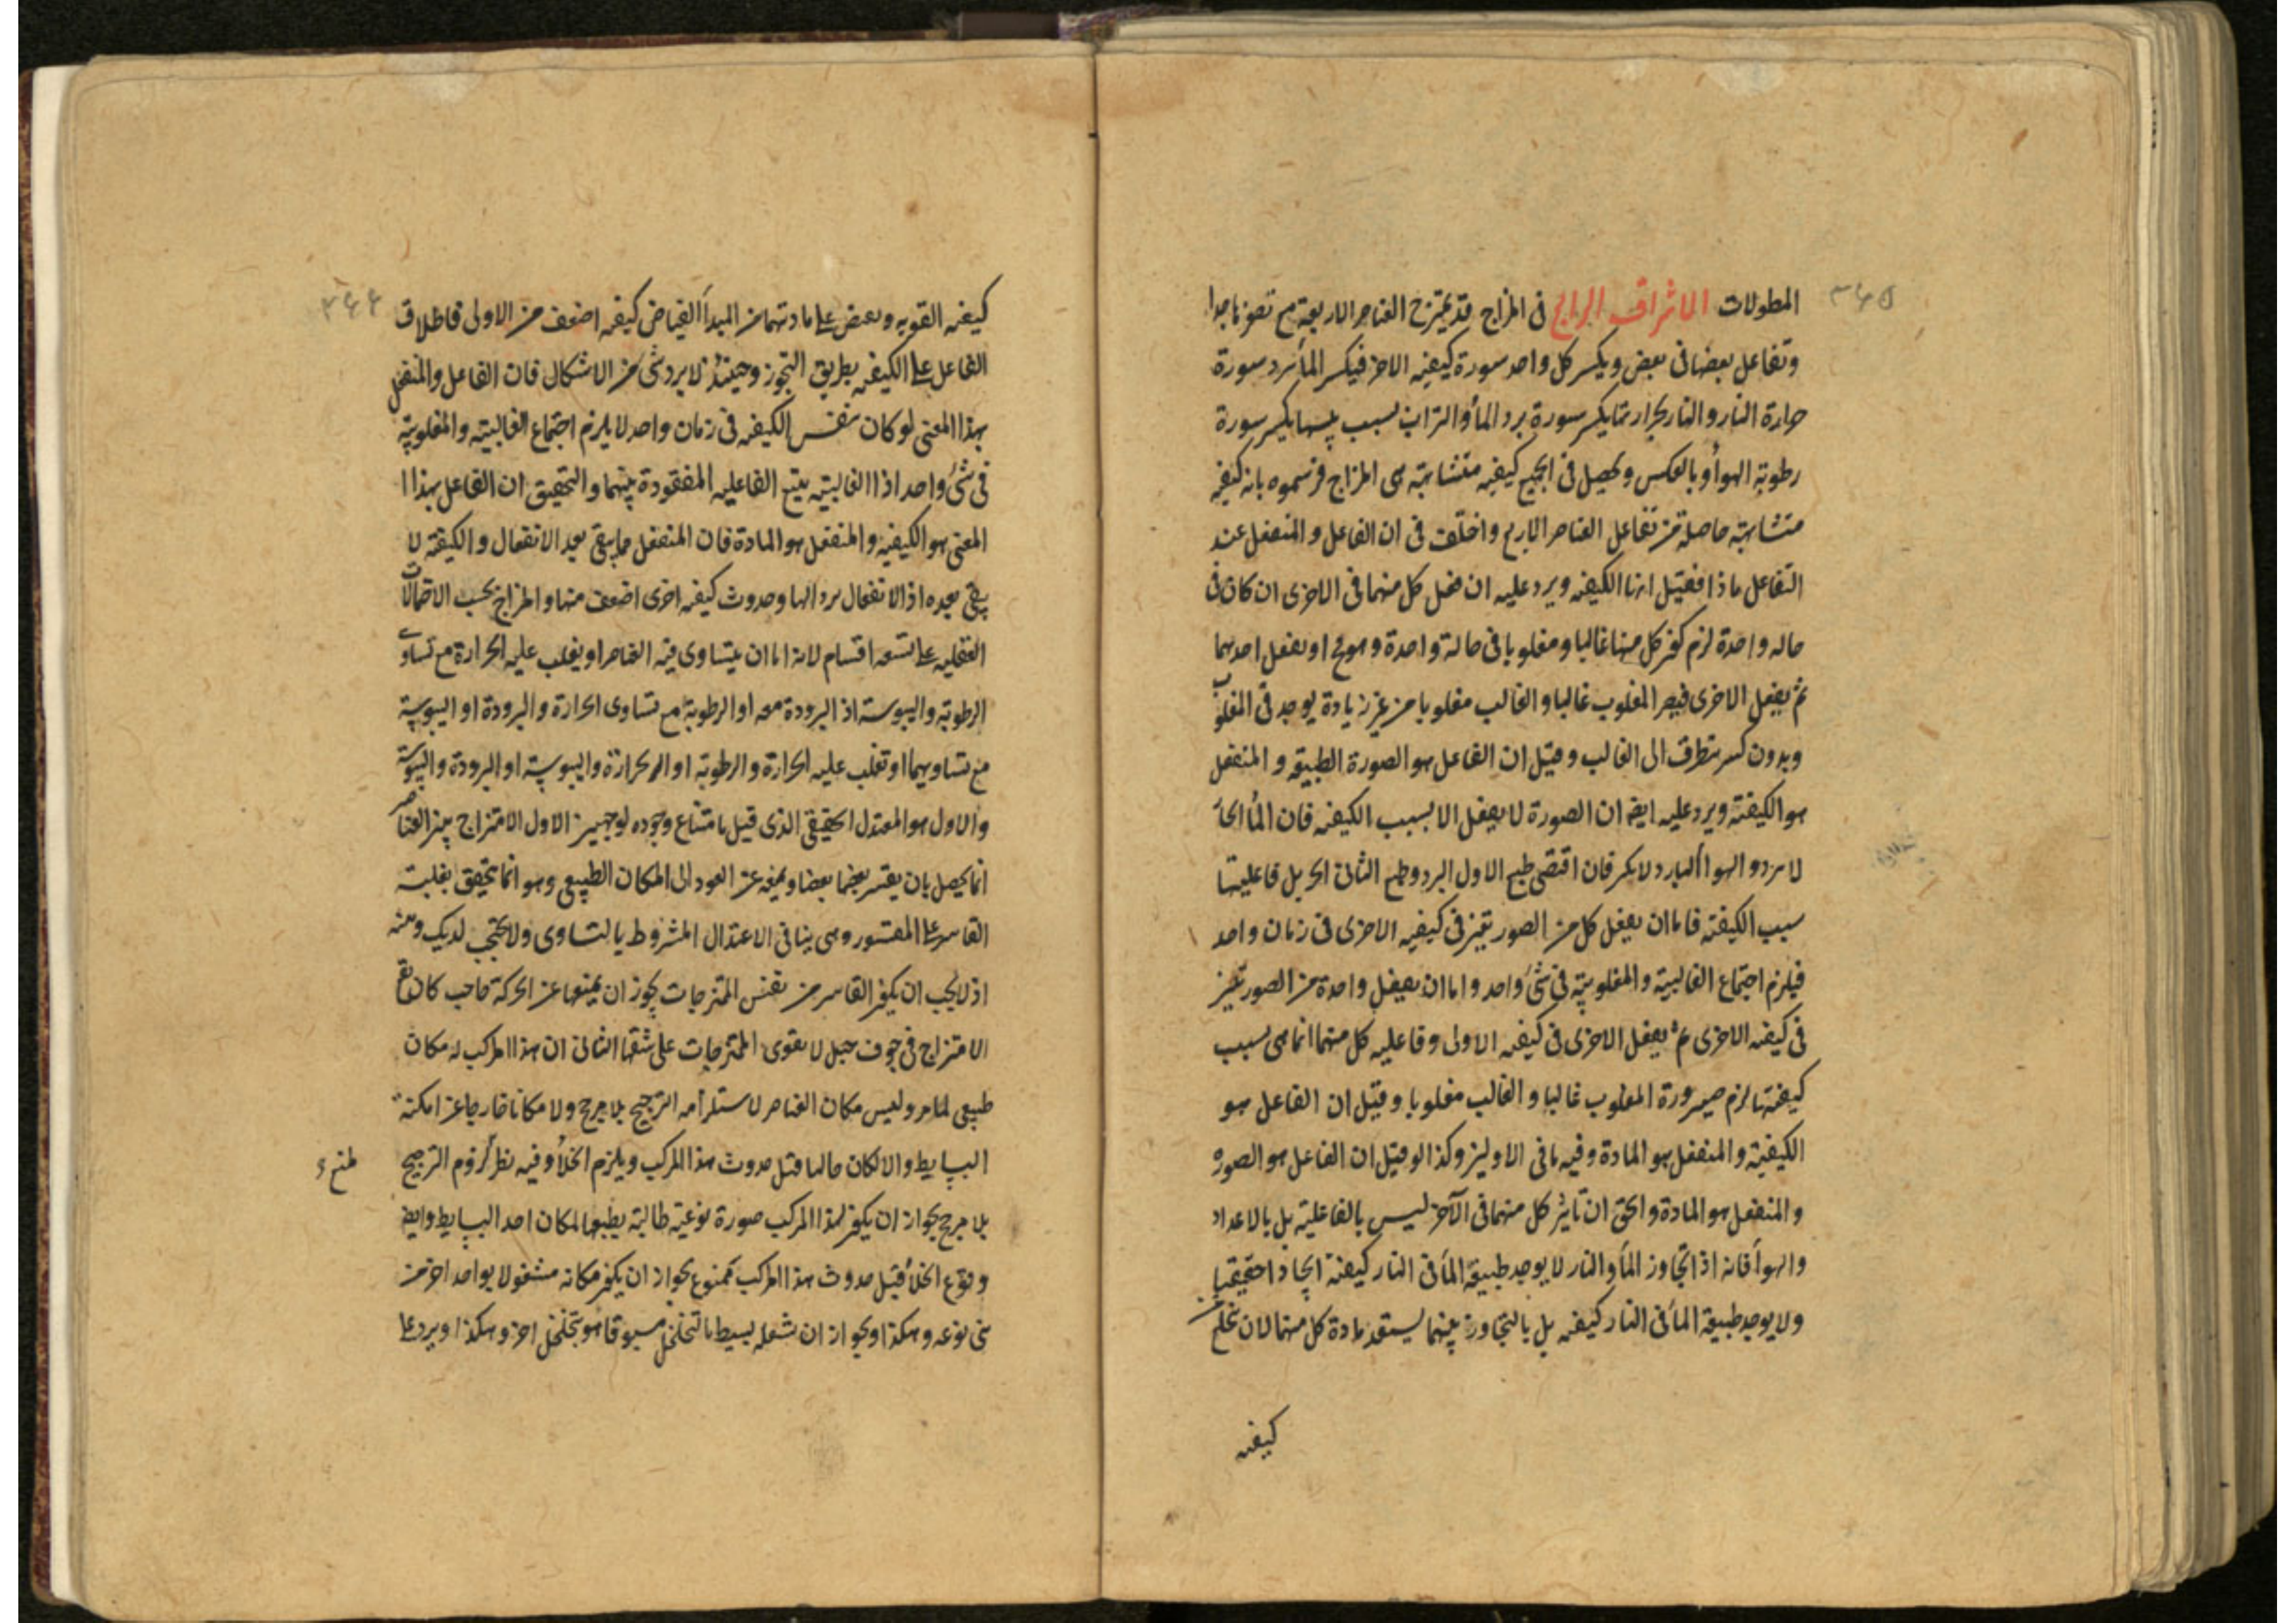 ٣٤٥
المطولات الاشراق الرابع فى المزاج قد يمتزج العناصر الاربعة مع تصغر ما جدا
وتفاعل بعضها فى بعض ويكسر كل واحد سورة كيفية الاخر فيكسر الماء ببرد سورة
حرارة النار والنار بحرارتها يكسر سورة برد الماء والتراب بسبب يبسها يكسر سورة
رطوبة الهواء وبالعكس ويحصل فى الجميع كيفية متشابهة هى المزاج فرسموه بانه كيفية
متشابهة حاصلة من تفاعل العناصر الاربع واختلف فى ان الفاعل والمنفعل عند
التفاعل ماذا فقيل انها الكيفية ويرد عليه ان فعل كل منهما فى الاخرى ان كان فى
حاله واحدة لزم كون كل منها غالبا ومغلوبا فى حالة واحدة وهو مح او يفعل احدهما
ثم يفعل الاخرى فيصير المغلوب غالبا والغالب مغلوبا من غير زيادة يوجد فى المغلوب
وبدون كسر يتطرق الى الغالب وقيل ان الفاعل هو الصورة الطبيعة والمنفعل
هو الكيفية ويرد عليه ايضا ان الصورة لا يفعل الا بسبب الكيفية فان الماء الحار
لا يبرد والهواء البارد لا يكسر فان اقتضى طبع الاول البرد وطبع الثانى الحر بل فاعليتها
بسبب الكيفية فاما ان يفعل كل من الصورتين فى كيفية الاخرى فى زمان واحد
فيلزم اجتماع الغالبية والمغلوبية فى شئ واحد واما ان يفعل واحدة من الصورتين
فى كيفية الاخرى ثم يفعل الاخرى فى كيفية الاولى وفاعلية كل منهما انما هى بسبب
كيفيتها لزم صيرورة المغلوب غالبا والغالب مغلوبا وقيل ان الفاعل هو
الكيفية والمنفعل هو المادة وفيه ما فى الاولين وكذا لو قيل ان الفاعل هو الصورة
والمنفعل هو المادة والحق ان تأثير كل منهما فى الآخر ليس بالفاعلية بل بالاعداد
والهواء فانه اذا تجاوز الماء والنار لا يوجد طبيعة الماء فى النار كيفية ايجادا حقيقيا
ولا يوجد طبيعة الماء فى النار كيفية بل بالتجاور بينهما يستعد مادة كل منهما لان تخلع
كيفية
٣٤٦
كيفية القوية ويفيض على مادتهما من المبدأ الفياض كيفية اضعف من الاولى فاطلاق
الفاعل على الكيفية بطريق التجوز وحينئذ لا يرد شئ من الاشكال فان الفاعل والمنفعل
بهذا المعنى لو كان نفس الكيفية فى زمان واحد لا يلزم اجتماع الغالبية والمغلوبية
فى شئ واحد اذ الغالبية يتبع الفاعلية المفقودة بينهما والتحقيق ان الفاعل بهذا
المعنى هو الكيفية والمنفعل هو المادة فان المنفعل ما يبقى بعد الانفعال والكيفية لا
يبقى بعده اذ الانفعال زوالها وحدوث كيفية اخرى اضعف منها والمزاج بحسب الاحتمالات
العقلية على تسعة اقسام لانه اما ان يتساوى فيه العناصر او يغلب عليه الحرارة مع تساوى
الرطوبة واليبوسة اذ البرودة معه او الرطوبة مع تساوى الحرارة والبرودة او اليبوسة
مع تساويهما او تغلب عليه الحرارة والرطوبة او الحرارة واليبوسة او البرودة واليبوسة
والاول هو المعتدل الحقيقى الذى قيل بامتناع وجوده لوجهين الاول الامتزاج بين العناصر
انما يحصل بان يقسر بعضها بعضا ويمنعه عن العود الى المكان الطبيعى وهو انما يتحقق بغلبة
القاسر على المقسور وهى ينافى الاعتدال المشروط بالتساوى ولا يحتجب لديك وهنه
اذ لا يجب ان يكون القاسر من نفس الممتزجات يجوز ان يمنعها عن الحركة حاجب كان يقع
الامتزاج فى جوف جبل لا يقوى الممتزجات على شقها الثانى ان هذا المركب له مكان
طبيعى لما مر وليس مكان العناصر لاستلزامه الترجيح بلا مرجح ولا مكانا خارجا عن امكنة
البسايط والا لكان خاليا قبل حدوث هذا المركب ويلزم الخلأ وفيه نظر لزوم الترجيح
بلا مرجح بجواز ان يكون لهذا المركب صورة نوعية طالبة بطبعها لمكان احد البسايط وايضا
وقوع الخلأ قبل حدوث هذا المركب ممنوع بجواز ان يكون مكانه مشغولا بواحد اخر من
بنى نوعه وهكذا وبجواز ان شغله بسيط بالتخلخل مسبوقا هو بتخلخل اخر وهكذا ويرد على